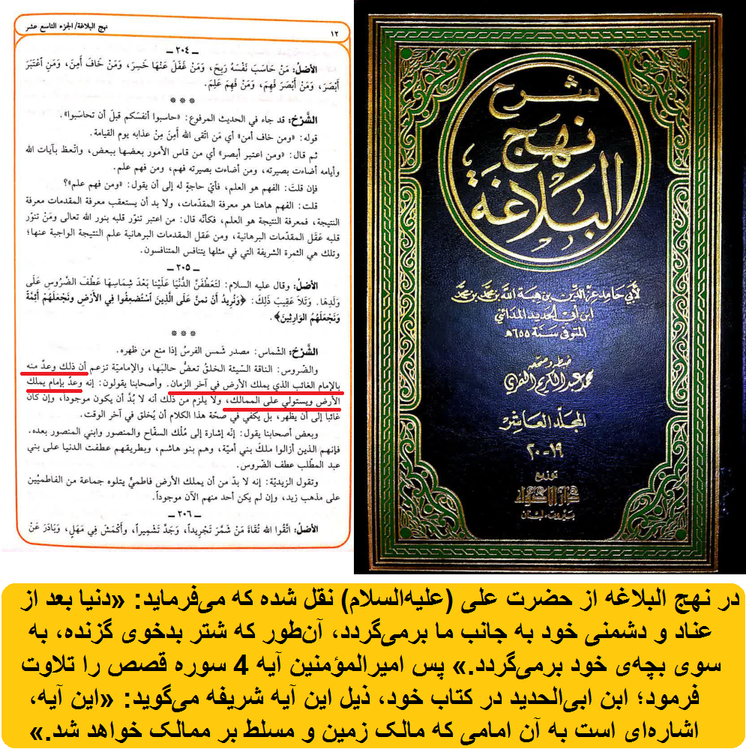 نهج البلاغة/الجزء التاسع عشر
١٢
ــ ٢٠٤ ــ
الأصْلُ: مَنْ حَاسَبَ نَفْسَهُ رَبِحَ، وَمَنْ غَفَلَ عَنْهَا خَسِرَ، وَمَنْ خَافَ أَمِنَ، وَمَنِ اعْتَبَرَ
أَبْصَرَ، وَمَنْ أَبْصَرَ فَهِمَ، وَمَنْ فَهِمَ عَلِمَ.
* * *
الشَّرْحُ: قد جاء في الحديث المرفوع: «حاسبوا أنفسكم قبل أن تحاسَبوا».
قوله: «ومن خاف أمن» أي مَن اتَّقى الله أَمِنَ مِنْ عذابه يوم القيامة.
ثم قال: «ومن اعتبر أبصر» أي من قاس الأمور بعضها ببعض، واتَّعظ بآيات الله
وأيامه أضاءت بصيرته، ومن أضاءت بصيرته فهم، ومن فهم علم.
فإن قلتَ: الفهم هو العلم، فأيّ حاجةٍ له إلى أن يقول: «ومن فهم علم»؟
قلت: الفهم هاهنا هو معرفة المقدّمات، ولا بد أن يستعقب معرفة المقدمات معرفة
النتيجة، فمعرفة النتيجة هو العلم، فكأنّه قال: من اعتبر تنوّر قلبه بنور الله تعالى ومَنْ تنوّر
قلبه عَقَل المقدمات البرهانية، ومن عَقَل المقدمات البرهانية علم النتيجة الواجبة عنها؛
وتلك هي الثمرة الشريفة التي في مثلها يتنافس المتنافسون.
ــ ٢٠٥ ــ
الأصْلُ: وقال عليه السلام: لَتَعْطِفَنَّ الدُّنْيَا عَلَيْنَا بَعْدَ شِمَاسِهَا عَطْفَ الضَّرُوسِ عَلَى
وَلَدِهَا. وَتَلاَ عَقِيبَ ذَلِكَ: ﴿وَنُرِيدُ أَنْ نَمُنَّ عَلَى الَّذِينَ اسْتُضْعِفُوا فِي الأَرْضِ وَنَجْعَلَهُمْ أَئِمَّةً
وَنَجْعَلَهُمُ الْوَارِثِينَ﴾.
* * *
الشَّرْحُ: الشماس: مصدر شَمس الفرسُ إذا منع من ظهره.
والضّروس: الناقة السيئة الخلق تعضّ حالبَها، والإماميّة تزعم أن ذلك وعدٌ منه
بالإمام الغائب الذي يملك الأرض في آخر الزمان. وأصحابنا يقولون: إنه وعدٌ بإمام يملك
الأرض ويستولي على الممالك، ولا يلزم من ذلك أنه لا بُدّ أن يكون موجوداً، وإن كان
غائباً إلى أن يظهر، بل يكفي في صحّة هذا الكلام أن يُخلق في آخر الوقت.
وبعض أصحابنا يقول: إنّه إشارة إلى مُلْك السفّاح والمنصور وابني المنصور بعده.
فإنهم الذين أزالوا ملكَ بني أميّة، وهم بنو هاشم، وبطريقهم عطفت الدنيا على بني
عبد المطّلب عطف الضّروس.
وتقول الزيديّة: إنه لا بدّ من أن يملك الأرض فاطميٌّ يتلوه جماعة من الفاطميّين
على مذهب زيد، وإن لم يكن أحد منهم الآن موجوداً.
ــ ٢٠٦ ــ
الأصْلُ: اتَّقُوا الله تُقَاةَ مَنْ شَمَّرَ تَجْرِيداً، وَجَدَّ تَشْمِيراً، وَأَكْمَشَ فِي مَهَلٍ، وَبَادَرَ عَنْ
شرح
نهج
البلاغة
لأبي حامد عز الدين بن هبة الله بن محمد بن محمد
ابن أبي الحديد المدائني
المتوفى سنة ٦٥٥ هـ
ضبطه وصححه
محمد عبد الكريم النمري
المجلد العاشر
١٩-٢٠
توزيع
بيروت - لبنان
در نهج البلاغه از حضرت علی (علیه‌السلام) نقل شده که می‌فرماید: «دنیا بعد از
عناد و دشمنی خود به جانب ما برمی‌گردد، آن‌طور که شتر بدخوی گزنده، به
سوی بچه‌ی خود برمی‌گردد.» پس امیرالمؤمنین آیه 4 سوره قصص را تلاوت
فرمود؛ ابن ابی‌الحدید در کتاب خود، ذیل این آیه شریفه می‌گوید: «این آیه،
اشاره‌ای است به آن امامی که مالک زمین و مسلط بر ممالک خواهد شد.»